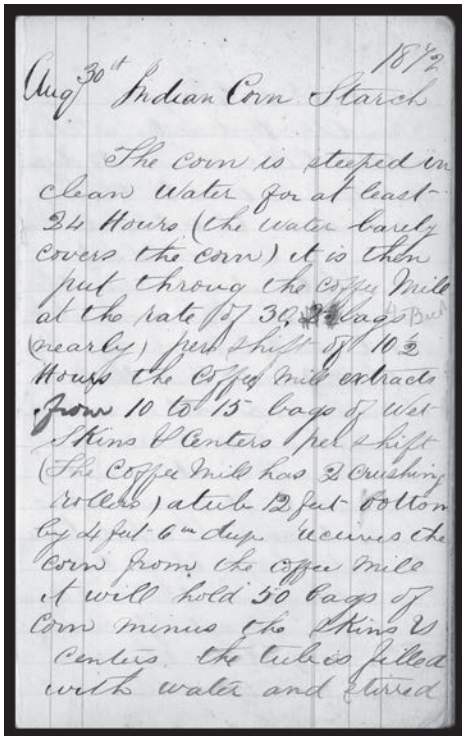 1872
Aug 30th Indian Corn Starch
The corn is steeped in
clean water for at least
24 Hours (the water barely
covers the corn) it is then
put throug the coffee Mill
at the rate of 30, bags
(nearly) per shift of 10½
Hours the Coffee Mill extracts
from 10 to 15 bags of Wet
Skins & Centers per shift
(The Coffee Mill has 2 crushing
rollers) a tub 12 feet bottom
by 4 feet 6 in deep recieves the
corn from the coffee mill
it will hold 50 bags of
Corn minus the skins &
centers. the tub is filled
with water and stirred